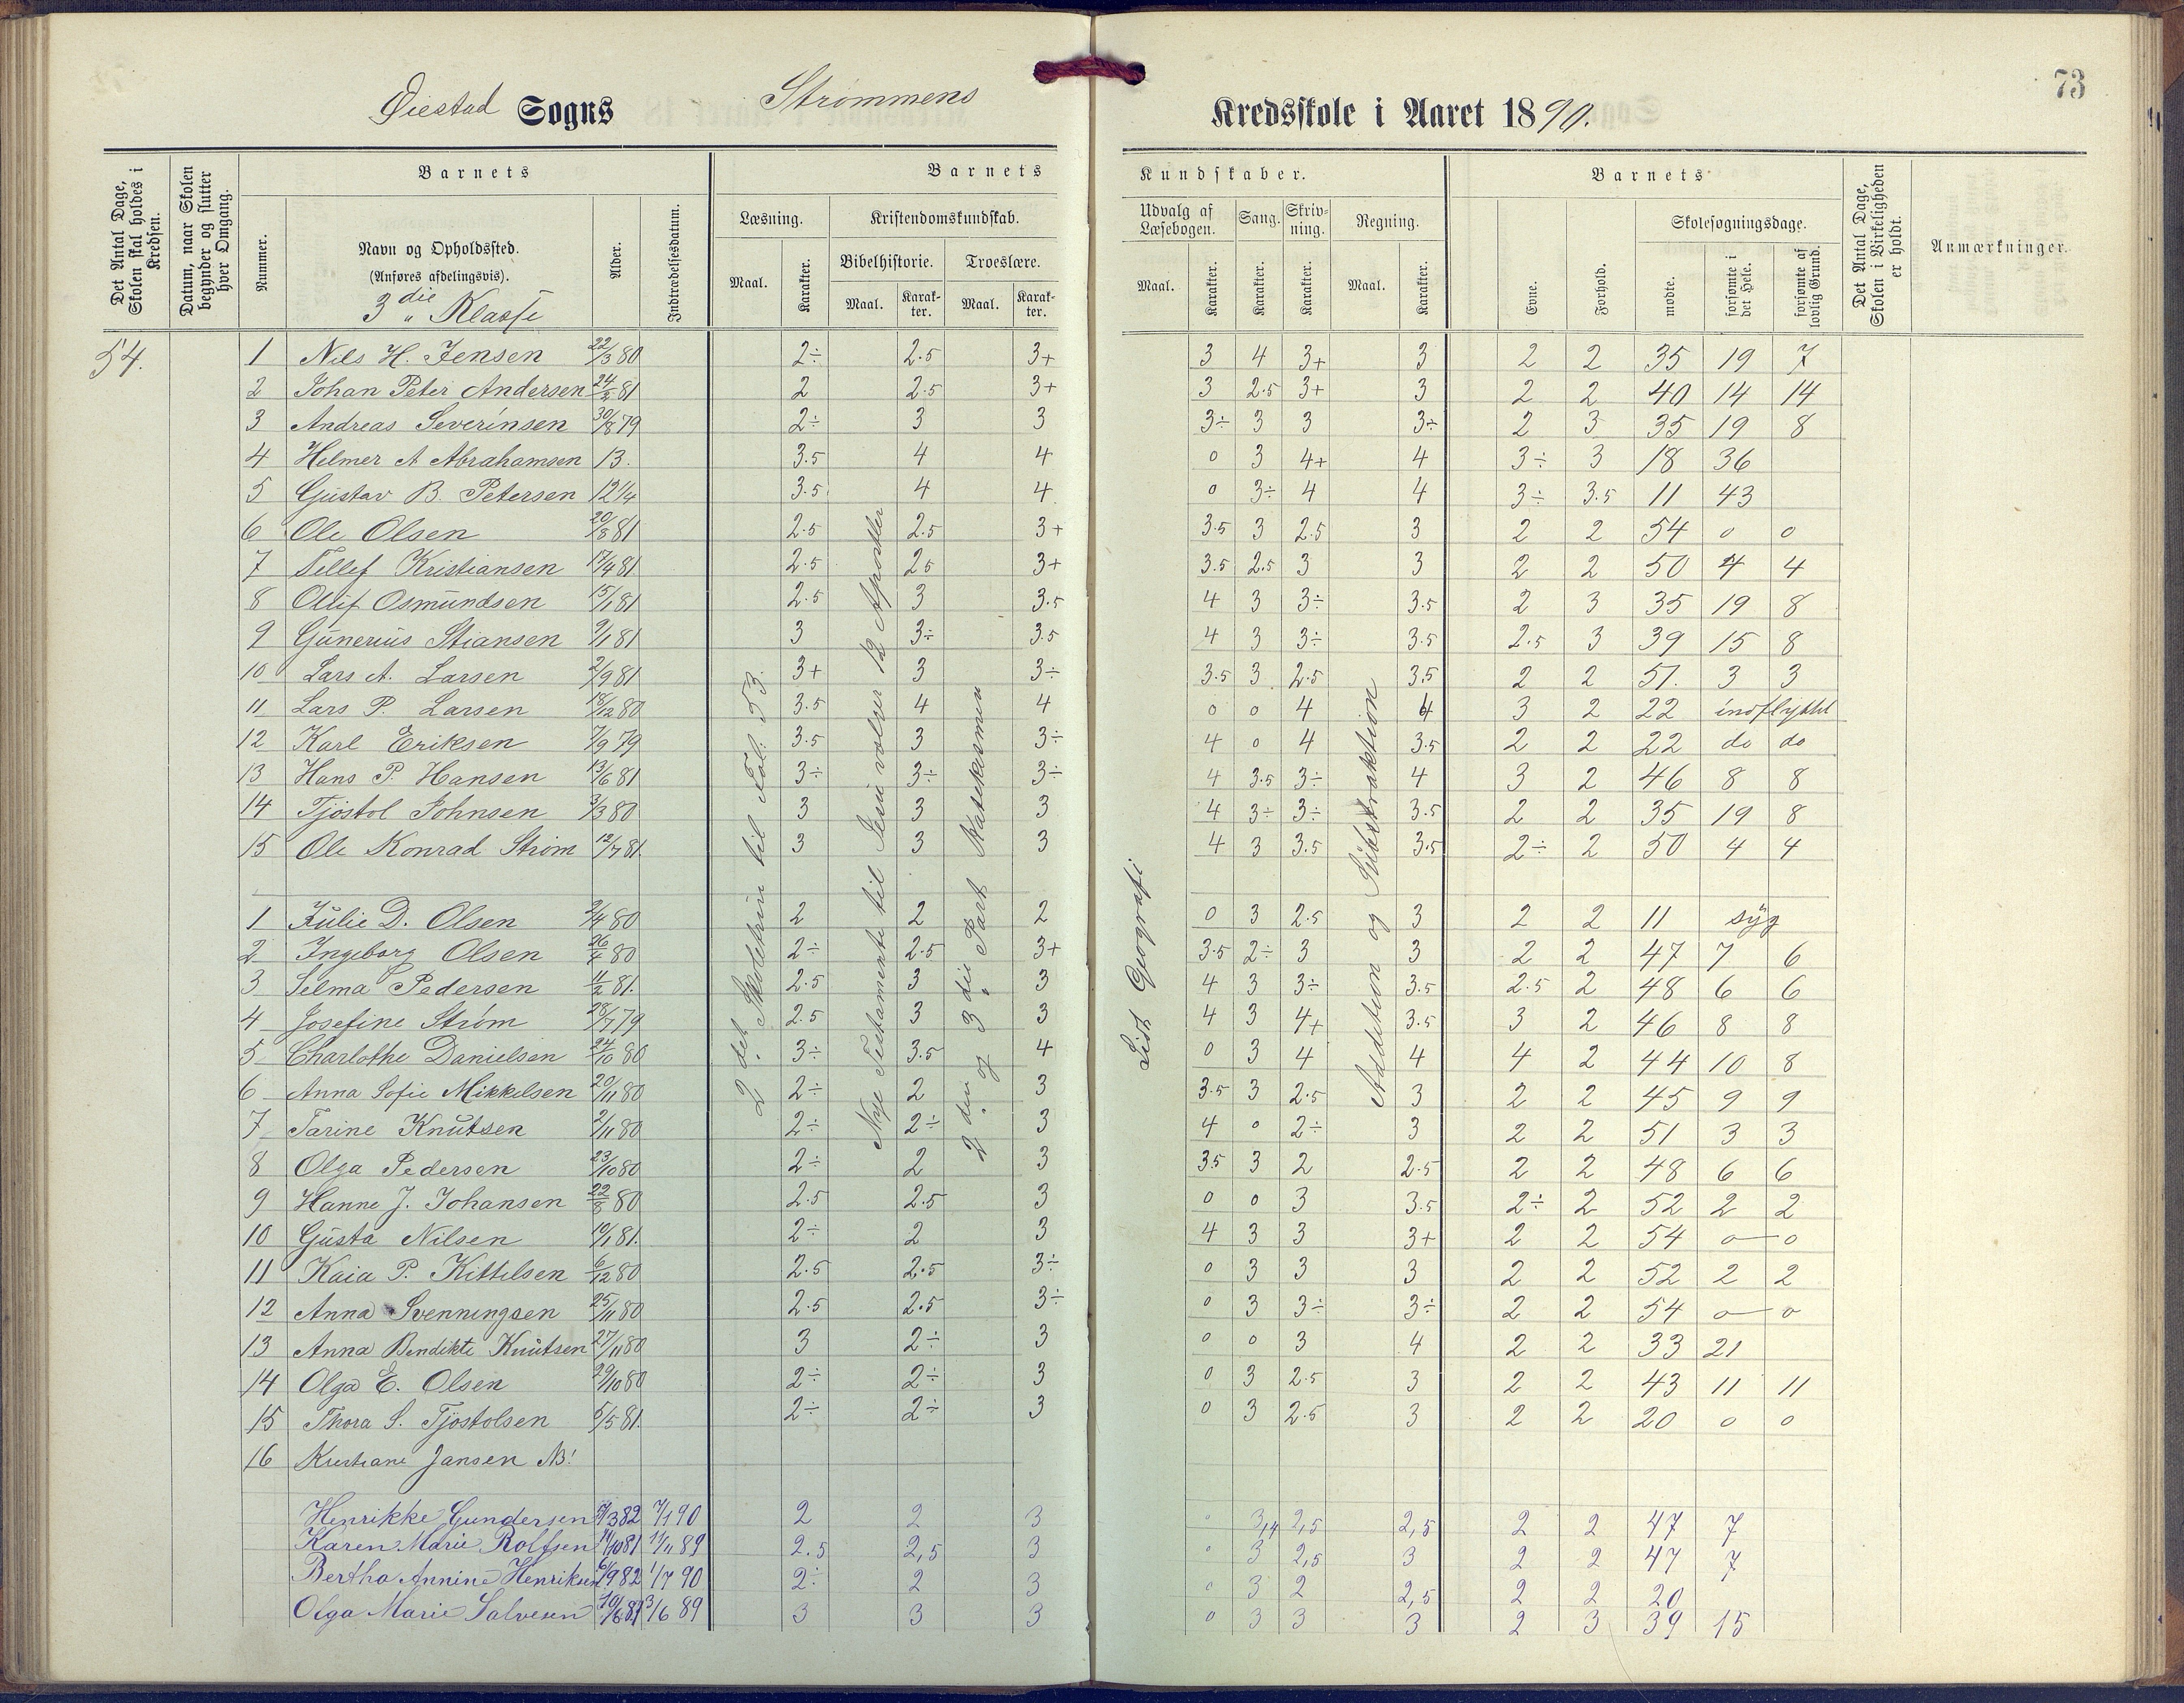 73
Øiestad Sogns Strømmens Kredsskole i Aaret 1890.
Det Antal Dage, Skolen skal holdes i Kredsen.
Datum, naar Skolen begynder og slutter hver Omgang.
Barnets
Nummer.
Navn og Opholdssted.
(Anføres afdelingsvis).
3die Klasse
Alder.
Indtrædelsesdatum.
Barnets Kundskaber.
Læsning.
Maal.
Karakter.
Kristendomskundskab.
Bibelhistorie.
Maal.
Karakter.
Troeslære.
Maal.
Karakter.
Udvalg af Læsebogen.
Maal.
Karakter.
Sang.
Karakter.
Skrivning.
Karakter.
Regning.
Maal.
Karakter.
Barnets
Evne.
Forhold.
Skolesøgningsdage.
mødte.
forsømte i det Hele.
forsømte af lovlig Grund.
Det Antal Dage, Skolen i Virkeligheden er holdt.
Anmærkninger.
54.
2det Skoletrin til Fol. 53.
Nye Testamente til Jesu vælger 12 Apostler
2den og 3die Part Katekismen
Lidt Geografi
Addition og Subtraktion
1 Nils H. Jensen 22/3 80 2÷ 2.5 3+ 3 4 3+ 3 2 2 35 19 7
2 Johan Peter Andersen 24/2 81 2 2.5 3+ 3 2.5 3+ 3 2 2 40 14 14
3 Andreas Severinsen 30/8 79 2÷ 3 3 3÷ 3 3 3÷ 2 3 35 19 8
4 Helmer A Abrahamsen 13. 3.5 4 4 0 3 4+ 4 3÷ 3 18 36
5 Gustav B. Petersen 12 1/4 3.5 4 4 0 3÷ 4 4 3÷ 3.5 11 43
6 Ole Olsen 20/8 81 2.5 2.5 3+ 3.5 3 2.5 3 2 2 54 0 0
7 Tellef Kristiansen 17/4 81. 2.5 2.5 3+ 3.5 2.5 3 3 2 2 50 4 4
8 Oluf Osmundsen 15/1 81 2.5 3 3.5 4 3 3÷ 3.5 2 3 35 19 8
9 Gunerius Stiansen 9/1 81 3 3÷ 3.5 4 3 3÷ 3.5 2.5 3 39 15 8
10 Lars A. Larsen 2/9 81 3+ 3 3÷ 3.5 3 2.5 3.5 2 2 51. 3 3
11 Lars P. Larsen 18/12 80 3.5 4 4 0 0 4 4 3 2 22 indflyttet
12 Karl Eriksen 7/9 79 3.5 3 3÷ 4 0 4 3.5 2 2 22 do do
13 Hans P. Hansen 13/6 81 3÷ 3÷ 3÷ 4 3.5 3÷ 4 3 2 46 8 8
14 Tjøstol Johnsen 3/3 80 3 3 3 4 3÷ 3÷ 3.5 2 2 35 19 8
15 Ole Konrad Strøm 12/7 81. 3 3 3 4 3 3.5 3.5 2÷ 2 50 4 4
1 Julie D. Olsen 2/4 80 2 2 2 0 3 2.5 3 2 2 11 syg
2 Ingeborg Olsen 26/4 80 2÷ 2.5 3+ 3.5 2÷ 3 3 2 2 47 7 6
3 Selma Pedersen 4/2 81. 2.5 3 3 4 3 3÷ 3.5 2.5 2 48 6 6
4 Josefine Strøm 28/7 79 2.5 3 3 4 3 4+ 3.5 3 2 46 8 8
5 Charlothe Danielsen 24/10 80 3÷ 3.5 4 0 3 4 4 4 2 44 10 8
6 Anna Sofie Mikkelsen 20/11 80 2÷ 2 3 3.5 3 2.5 3 2 2 45 9 9
7 Tarine Knutsen 2/11 80 2÷ 2÷ 3 4 0 2÷ 3 2 2 51 3 3
8 Olga Pedersen 23/10 80 2÷ 2 3 3.5 3 2 2.5 2 2 48 6 6
9 Hanne J. Johansen 22/8 80 2.5 2.5 3 0 0 3 3.5 2÷ 2 52 2 2
10 Gusta Nilsen 19/1 81. 2÷ 2 3 4 3 3 3+ 2 2 54 0 0
11 Kaia P. Kittilsen 6/12 80 2.5 2.5 3÷ 0 3 3 3 2 2 52 2 2
12 Anna Svenningsen 25/11 80 2.5 2.5 3÷ 0 3 3÷ 3÷ 2 2 54 0 0
13 Anna Bendikte Knutsen 27/11 80 3 2÷ 3 0 0 3 4 2 2 33 21
14 Olga E. Olsen 29/10 80 2÷ 2÷ 3 0 3 2.5 3 2 2 43 11 11
15 Thora S. Tjøstolsen 5/5 81. 2÷ 2÷ 3 0 3 2.5 3 2 2 20 0 0
16 Kristiane Jansen NB!
Henrikke Gundersen 5/3 82 7/1 90 2 2 3 0 3,4 2,5 2,5 2 2 47 7
Karen Marie Rolfsen 14/10 81 11/11 89 2.5 2,5 3 0 3 2,5 3 2 2 47 7
Bertha Annine Henriksen 6/9 82 1/7 90 2÷ 2 3 0 3 2 2,5 2 2 20
Olga Marie Salvesen 10/6 81 3/6 89 3 3 3 0 3 3 3 2 3 39 15